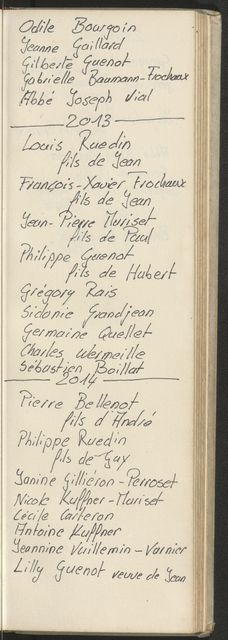 Odile Bourgoin
Jeanne Gaillard
Gilberte Guenot
Gabrielle Baumann-Frochaux
Abbé Joseph Vial
2013
Louis Ruedin
fils de Jean
François-Xavier Frochaux
fils de Jean
Jean-Pierre Muriset
fils de Paul
Philippe Guenot
fils de Hubert
Grégory Rais
Sidonie Grandjean
Germaine Quellet
Charles Wermeille
Sébastien Boillat
2014
Pierre Bellenot
fils d'André
Philippe Ruedin
fils de Guy
Janine Gilliéron-Perroset
Nicole Kuffner-Muriset
Cécile Carteron
Antoine Kuffner
Jeannine Vuillemin-Varnier
Lilly Guenot veuve de Jean